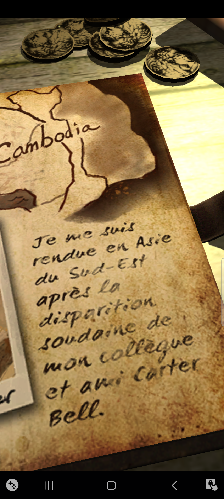 Cambodia
Je me suis
rendue en Asie
du Sud-Est
après la
disparition
soudaine de
mon collègue
et ami Carter
Bell.